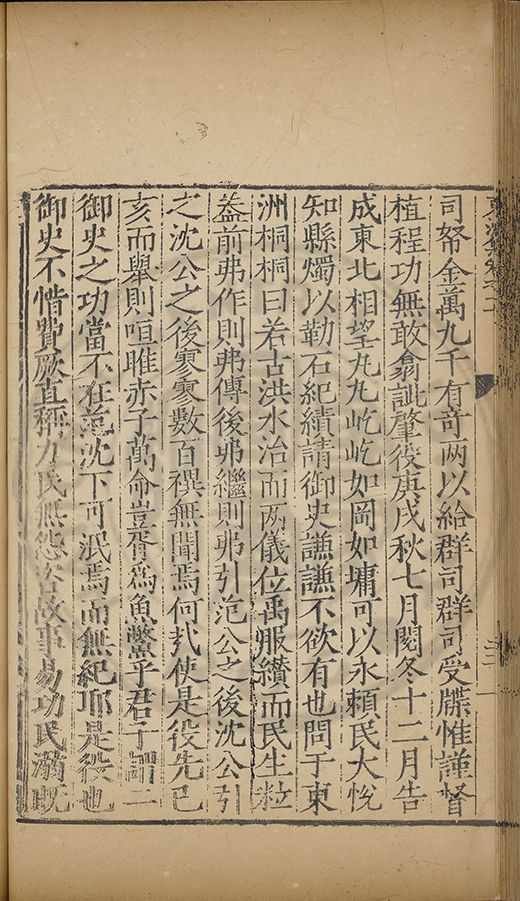 司帑金萬九千有竒两以給群司群司受牒惟謹督
植程功無敢翕訿肇役庚戌秋七月閱冬十二月告
成東北相望丸丸屹屹如岡如墉可以永頼民大悅
知縣燭以勒石紀績請御史謙謙不欲有也問于東
洲桐桐曰若古洪水治而两儀位禹服纉而民生粒
葢前弗作則弗傳後弗繼則弗引范公之後沈公引
之沈公之後寥寥數百禩無聞焉何㢤使是役先已
亥而舉則咺雎赤子萬命豈胥爲魚鱉乎君子謂
御史之功當不在范沈下可泯焉而無紀耶是役也
御史不惜費厥直稱力民無怨咨故事易功民溺既